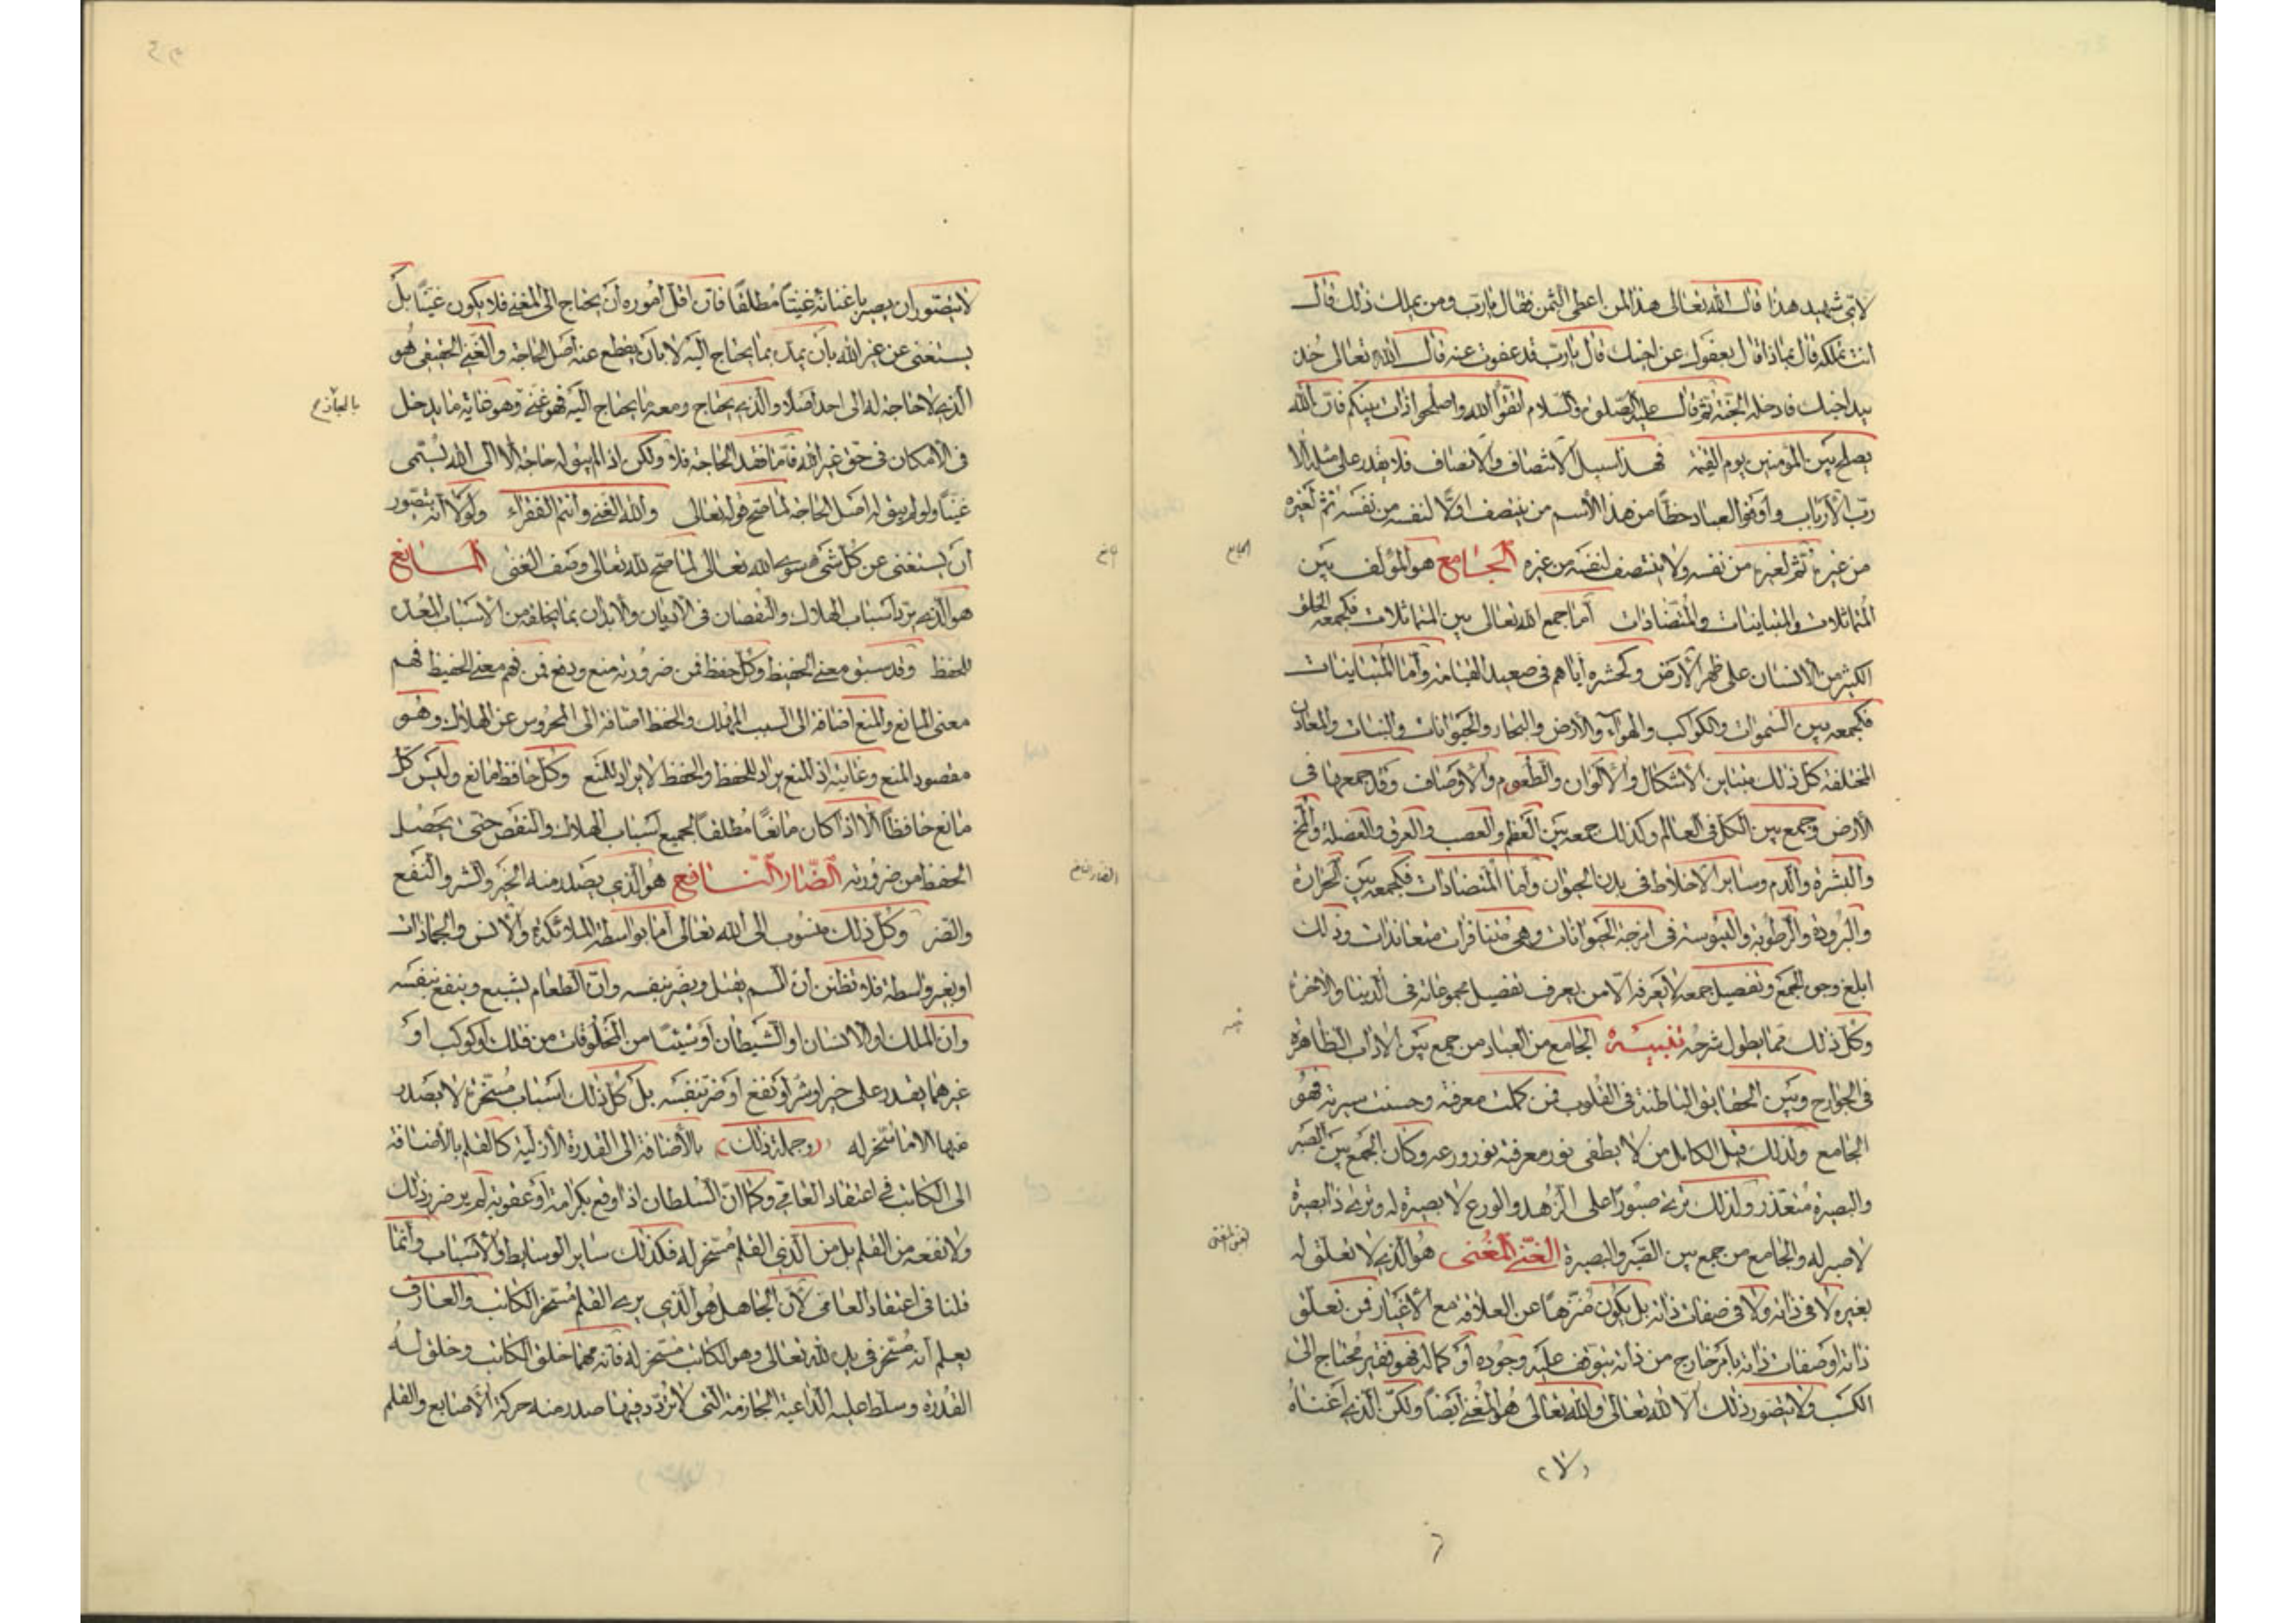 لاي شهيد هذا قال الله تعالى هذا لمن اعطى الثمن فقال يارب ومن يملك ذلك قال
انت تملكه قال بماذا قال بعفوك عن اخيك قال يارب قد عفوت عنه قال الله تعالى خذ
بيد اخيك فادخله الجنة ثم قال عليه الصلوة والسلام اتقوا الله واصلحوا ذات بينكم فان الله
يصلح بين المؤمنين يوم القيمة فهذا سبيل الانتصاف والانصاف فلا يقدر على مثله الا
رب الارباب واوفر العباد حظا من هذا الاسم من ينتصف اولا لنفسه من نفسه ثم لغيره
من غيره ثم لغيره من نفسه ولا ينتصف لنفسه من غيره الجامع هو المؤلف بين
الجامع
المتماثلات والمتباينات والمتضادات اما جمع الله تعالى بين المتماثلات فكجمعه الخلق
الكثير من الانسان على ظهر الارض وكحشره اياهم في صعيد القيامة واما المتباينات
فكجمعه بين السموات والكواكب والهواء والارض والبحار والحيوانات والنبات والمعادن
المختلفة كل ذلك متباين الاشكال والالوان والطعوم والاوصاف وقد جمعها في
الارض وجمع بين الكل في العالم وكذلك جمعه بين العظم والعصب والعرق والعضلة والمخ
والبشرة والدم وساير الاخلاط في بدن الحيوان واما المتضادات فكجمعه بين الحرارة
والبرودة والرطوبة واليبوسة في امزجة الحيوانات وهي متنافرات متعاندات وذلك
ابلغ وجوه الجمع وتفصيل جمعه لا يعرفه الا من يعرف تفصيل مجموعاته في الدنيا والاخرة
وكل ذلك مما يطول شرحه تنبيه الجامع من العباد من جمع بين الاداب الظاهرة
في الجوارح وبين الحقايق الباطنة في القلوب فمن كملت معرفته وحسنت سيرته فهو
الجامع ولذلك قيل الكامل من لا يطفى نور معرفته نور ورعه وكان الجمع بين الصبر
والبصيرة متعذر ولذلك ترى صبورا على الزهد والورع لا بصيرة له وترى ذا بصيرة
لا صبر له والجامع من جمع بين الصبر والبصيرة الغني المغنى هو الذي لا تعلق له
الغنى المغنى
بغيره لا في ذاته ولا في صفات ذاته بل يكون منزها عن العلاقة مع الاغيار فمن تعلق
ذاته او صفات ذاته بامر خارج من ذاته يتوقف عليه وجوده او كماله فهو فقير محتاج الى
الكسب ولا يتصور ذلك الا لله تعالى والله تعالى هو المغني ايضا ولكن الذي اغناه
لا
لا يتصور ان يصير باغنائه غنيا مطلقا فان اقل اموره ان يحتاج الى المغني فلا يكون غنيا بل
يستغنى عن غير الله بان يمده بما يحتاج اليه لا بان يقطع عنه اصل الحاجة والغني الحقيقي هو
الذي لا حاجة له الى احد اصلا والذي يحتاج ومعه ما يحتاج اليه فهو غني وهو غاية ما يدخل
في الامكان في حق غير الله فاما فقد الحاجة فلا ولكن اذا لم يبق له حاجة الا الى الله يسمى
غنيا ولو لم يبق له اصل الحاجة لما صح قوله تعالى والله الغني وانتم الفقراء ولولا انه يتصور
ان يستغنى عن كل شئ سوى الله تعالى لما صح لله تعالى وصف المغنى المانع
مانع
هو الذي يرد اسباب الهلاك والنقصان في الاديان والابدان بما يخلقه من الاسباب المعدة
للحفظ وقد سبق معنى الحفيظ وكل حفظ فمن ضرورته منع ودفع فمن فهم معنى الحفيظ فهم
معنى المانع والمنع اضافة الى السبب المهلك والحفظ اضافة الى المحروس عن الهلاك وهو
مقصود المنع وغايته اذ المنع يراد للحفظ والحفظ لا يراد للمنع وكل حافظ مانع وليس كل
مانع حافظا الا اذا كان مانعا مطلقا لجميع اسباب الهلاك والنقص حتى يحصل
الحفظ من ضرورته الضار النافع هو الذي يصدر منه الخير والشر والنفع
الضار النافع
والضر وكل ذلك منسوب الى الله تعالى اما بواسطة الملائكة والانس والجمادات
او بغير واسطة فلا تظنن ان السم يقتل ويضر بنفسه وان الطعام يشبع وينفع بنفسه
وان الملك او الانسان او الشيطان او شيئا من المخلوقات من فلك او كوكب او
غيرهما يقدر على خير او شر او نفع او ضر بنفسه بل كل ذلك اسباب مسخرة لا يصدر
منها الا ما سخر له (وجملة ذلك) بالاضافة الى القدرة الازلية كالقلم بالاضافة
الى الكاتب في اعتقاد العامي وكما ان السلطان اذا وقع بكرامة او عقوبة لم ير ضرر ذلك
ولا نفعه من القلم بل من الذي القلم مسخر له فكذلك ساير الوسايط والاسباب وانما
قلنا في اعتقاد العامي لان الجاهل هو الذي يرى القلم مسخر الكاتب والعارف
يعلم انه مسخر في يد الله تعالى وهو الكاتب مسخر له فانه مهما خلق الكاتب وخلق له
القدرة وسلط عليه الداعية الجازمة التي لا تردد فيها صدر منه حركة الاصابع والقلم